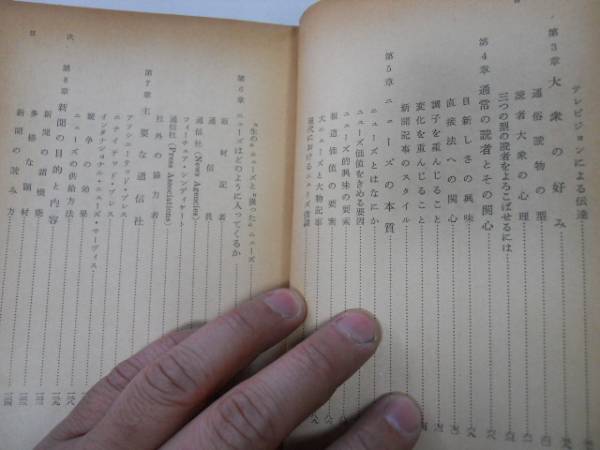 テレビジョンによる伝達
第3章 大衆の好み
通俗読物の型
読者大衆の心理
三つの型の読者をよろこばせるには
第4章 通常の読者とその関心
目新しさの興味
直依法への関心
調子を重んじること
変化を重んじること
新聞記事のスタイル
第5章 ニューズの本質
ニューズとはなにか
ニューズ価値をきめる要因
ニューズ的興味の要素
報道価値の要素
大ニューズと大物記事
現代における
目次
"生のニューズ"と"演つた"ニューズ
第6章 ニューズはどのように入ってくるか
取材記者
通信員
通信社 (News Agencies)
フィーチュア・シンディケート
通信社 (Press Associations)
社外の協力者
第7章 主要な通信社
アソシエーテッド・プレス
ユナイテッド・プレス
インタナショナル・ニューズ・サーヴィス
競争の効果
ニューズの供給方法
第8章 新聞の目的と内容
新聞の諸機能
多様な題材
新聞の読み方